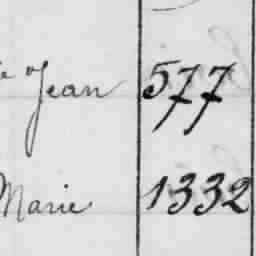 Jean 577
Marie 1332